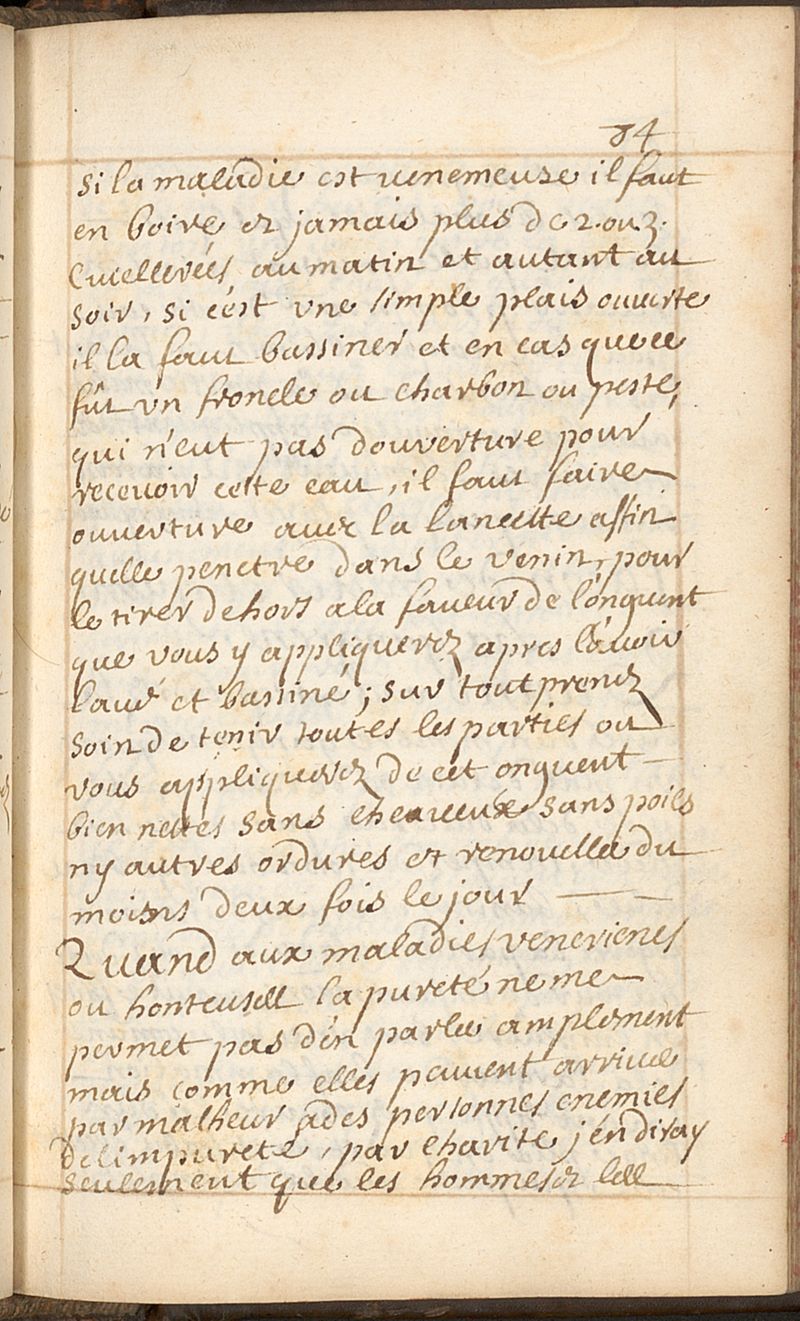 84
si la maladie est venemeuse il faut
en boire et jamais plus de 2. ou 3.
Cuellereés au matin et autant au
soir, si c'est vne simple plais ouverte
il la faut bassiner et en cas que ce
fût vn froncle ou charbon ou peste,
qui n'eut pas d'ouverture pour
recevoir cette eau, il faut faire
ouverture avec la lancette affin
quelle penetre dans le venin, pour
le tirer dehors a la faveur de l'onguent
que vous y appliquerez apres l'avoir
lavé et bassiné; sur tout prenez
soin de tenir toutes les parties ou
vous appliquerez de cet onguent
bien nettes sans cheveux sans poils
ny autres ordures et renouvella du
moisns deux fois le jour
Quand aux maladies venerienes
ou honteuses la pureté ne me
permet pas d'én parler amplement
mais comme elles peuvent arriver
par malheur a des personnes enemies
de limpureté, par charite j'én diray
seulement que les hommes et les